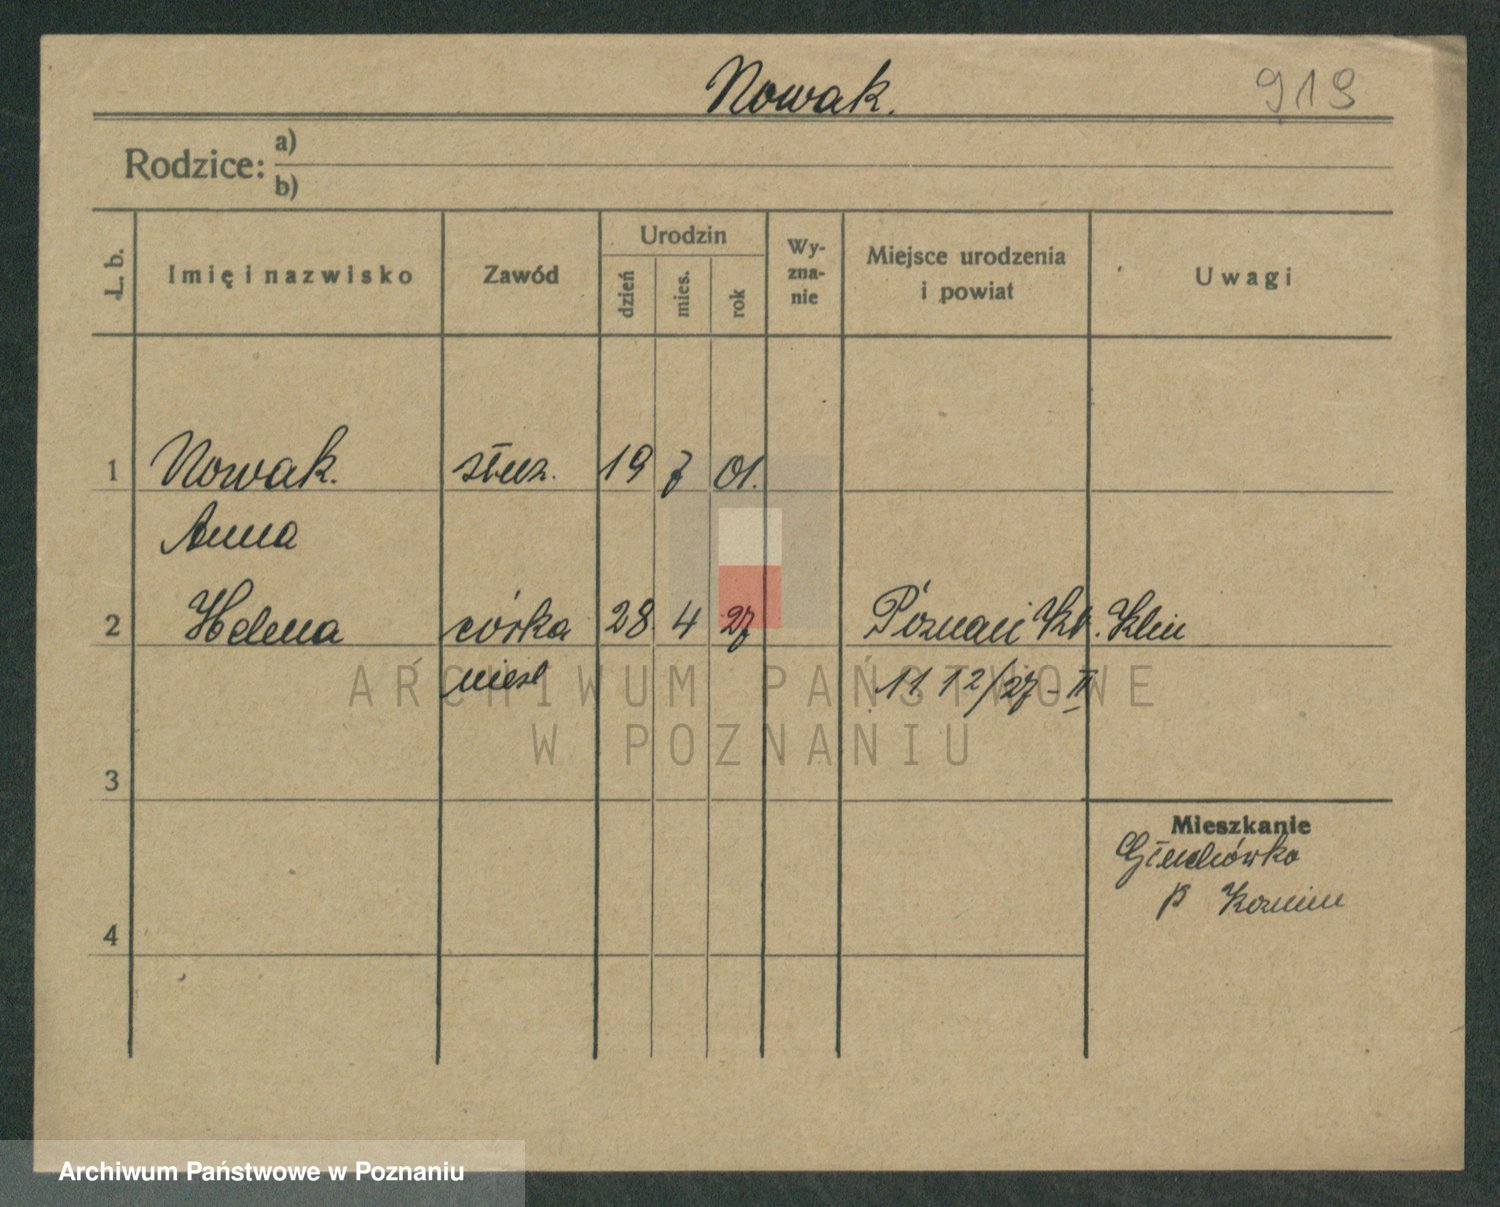 Nowak.
919
Rodzice: a)
b)
L. b.
Imię i nazwisko
Zawód
Urodzin
dzień
mies.
rok
Wy-
zna-
nie
Miejsce urodzenia
i powiat
Uwagi
1 Nowak. służ. 19 7 01.
Anna
2 Helena córka 28. 4 27 Poznań Kl. Klin
nieśl 11 12/27 - II
3
Mieszkanie
Głuchówko
p
4
ARCHIWUM PAŃSTWOWE
W POZNANIU
Archiwum Państwowe w Poznaniu